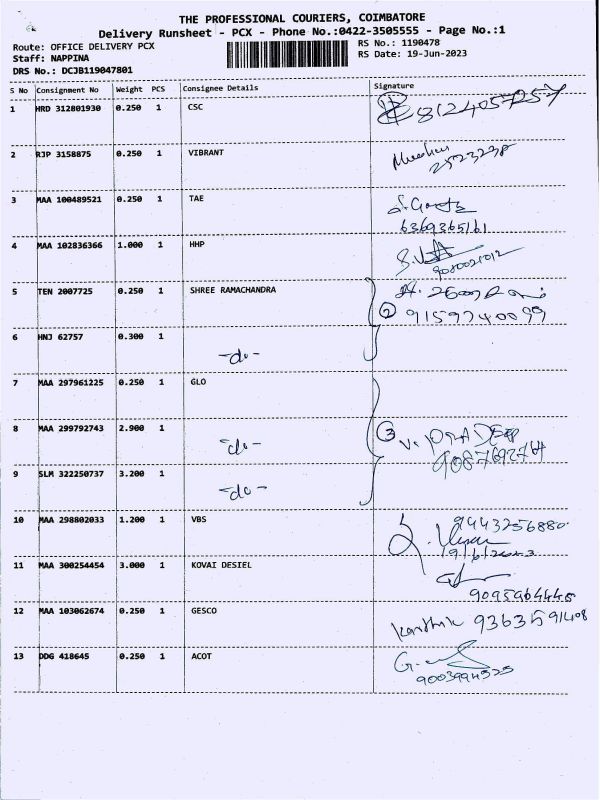 THE PROFESSIONAL COURIERS, COIMBATORE
Delivery Runsheet - PCX - Phone No.:0422-3505555 - Page No.:1
Route: OFFICE DELIVERY PCX
RS No.: 1190478
Staff: NAPPINA
RS Date: 19-Jun-2023
DRS No.: DCJB119047801
S No Consignment No Weight PCS Consignee Details Signature
1 HRD 312801930 0.250 1 CSC 8124057257
2 RJP 3158875 0.250 1 VIBRANT
2523238
3 MAA 100489521 0.250 1 TAE
6369365161
4 MAA 102836366 1.000 1 HHP
9080021012
5 TEN 2007725 0.250 1 SHREE RAMACHANDRA
2 9159740099
6 HNJ 62757 0.300 1
-do-
7 MAA 297961225 0.250 1 GLO
8 MAA 299792743 2.900 1
-do- 3 V. PRADEEP
9087692764
9 SLM 322250737 3.200 1
-do-
10 MAA 298802033 1.200 1 VBS 9443256880
19/6/2023
11 MAA 300254454 3.000 1 KOVAI DESIEL
9095964446
12 MAA 103062674 0.250 1 GESCO Karthik 9363591408
13 DDG 418645 0.250 1 ACOT
9003994525